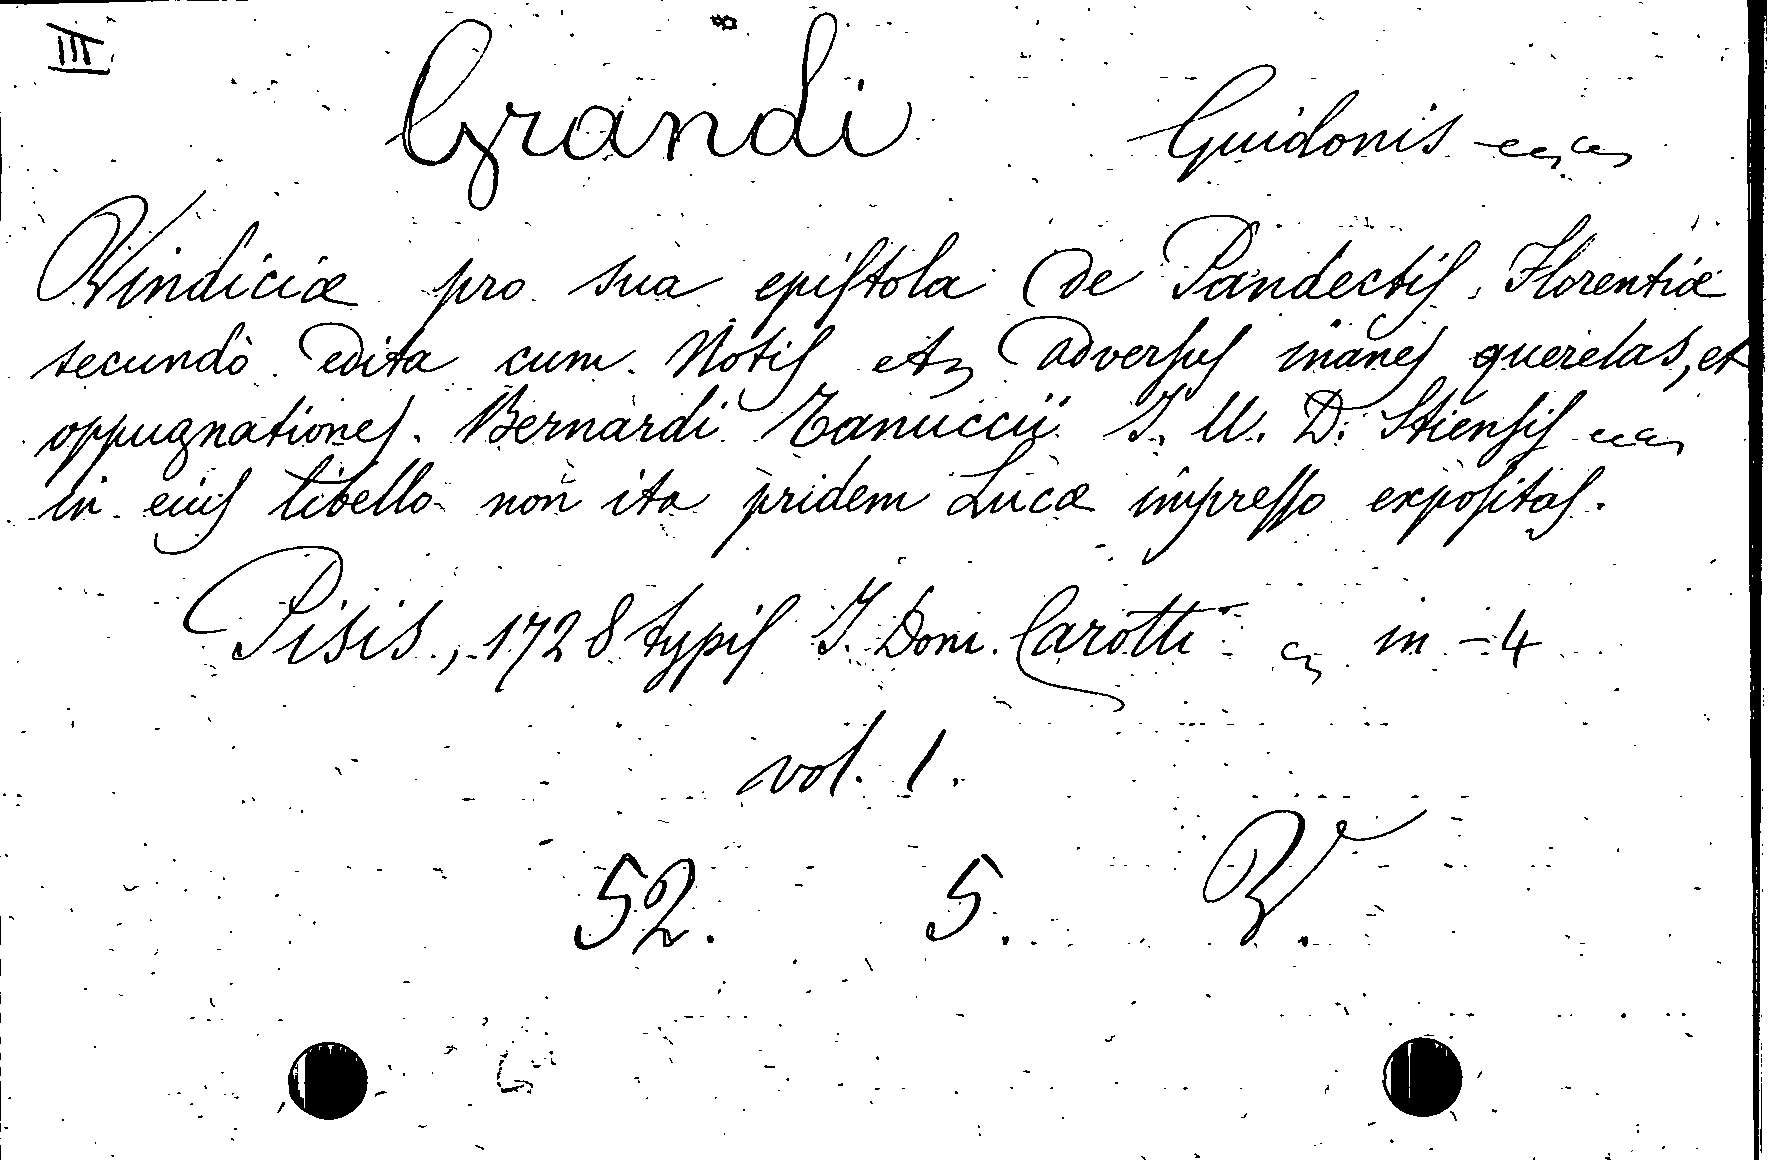 III
Grandi Guidonis
Vindiciæ pro sua epiſtola de Pandectiſ, Florentiæ
secundò edita cum Notiſ et adverſuſ inaneſ querelas, et
oppugnationeſ. Bernardi Tanuccii J. U. D. Stienſiſ
in eiuſ libello non ita pridem Lucæ impreſſo expoſitaſ.
Pisis, 1728 typiſ J. Dom. Carotti in-4
vol. 1.
52. 5.